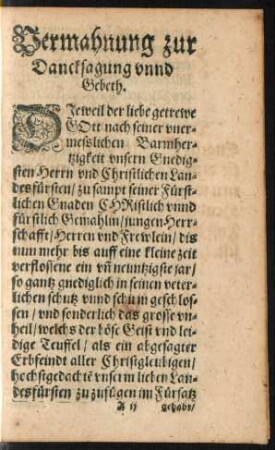 Vermahnung zur
Dancksagung vnnd
Gebeth.
DIeweil der liebe getrewe
GOtt nach seiner vner-
meßlichen Barmher-
tzigkeit vnsern Gnedig-
sten Herrn vnd Christlichen Lan-
desfürsten / zu sampt seiner Fürst-
lichen Gnaden CHRistlich vnnd
fürstlich Gemahlin / jungen Herr-
schafft / Herren vnd Frewlein / bis
nun mehr bis auff eine kleine zeit
verflossene ein vñ neuntzigste jar /
so gantz gnediglich in seinen veter-
lichen schutz vnnd schirm geschlos-
sen / vnd sonderlich das grosse vn-
heil / welchs der böse Geist vnd lei-
dige Teuffel / als ein abgesagter
Erbfeindt aller Christgleubigen /
hochstgedachtē vnserm lieben Lan-
desfürsten zu zufügen im Fürsatz
A ij gehabt /